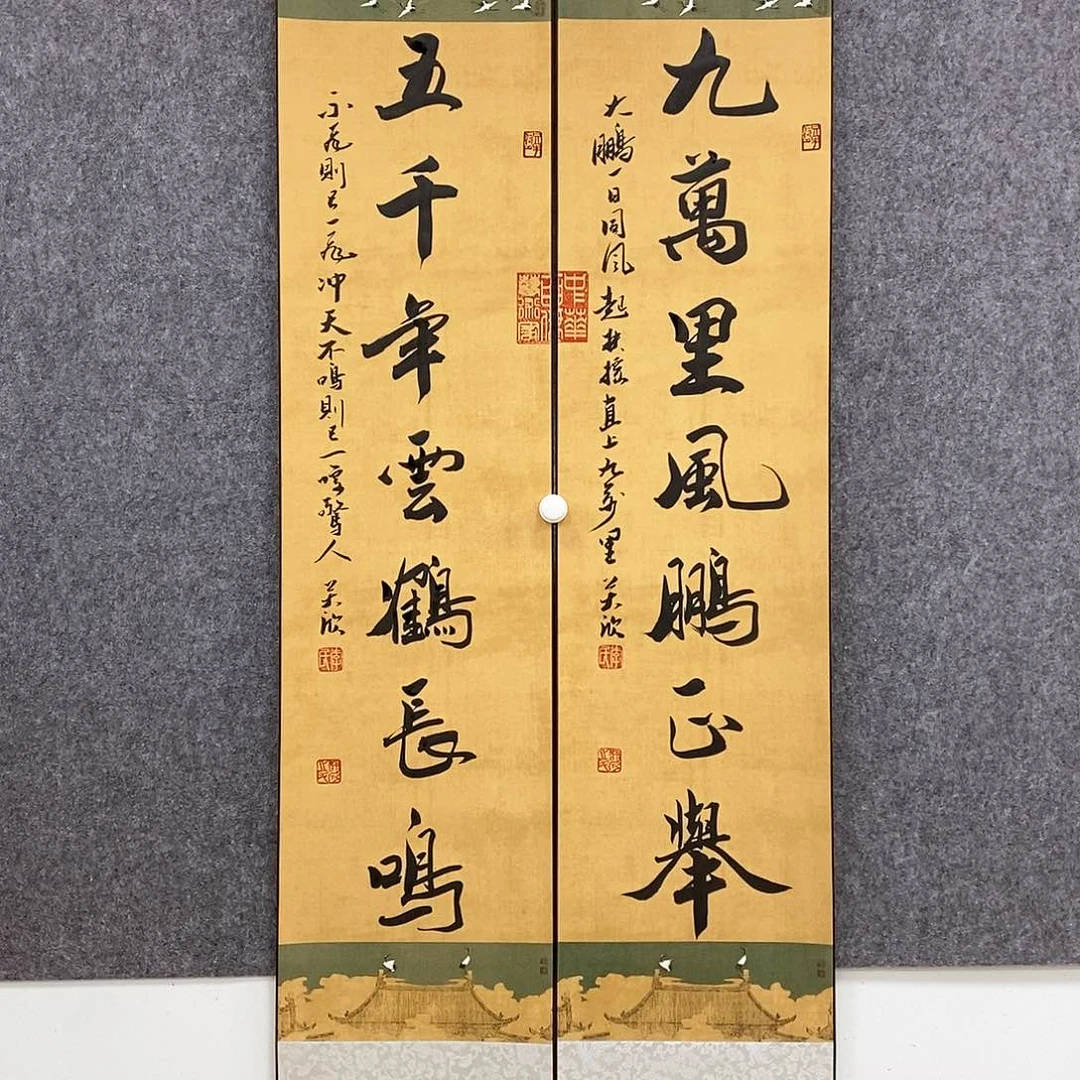 九萬里風鵬正舉
大鵬一日同風起扶搖直上九萬里
五千年雲鶴長鳴
不飛則已一飛冲天不鳴則已一鳴驚人